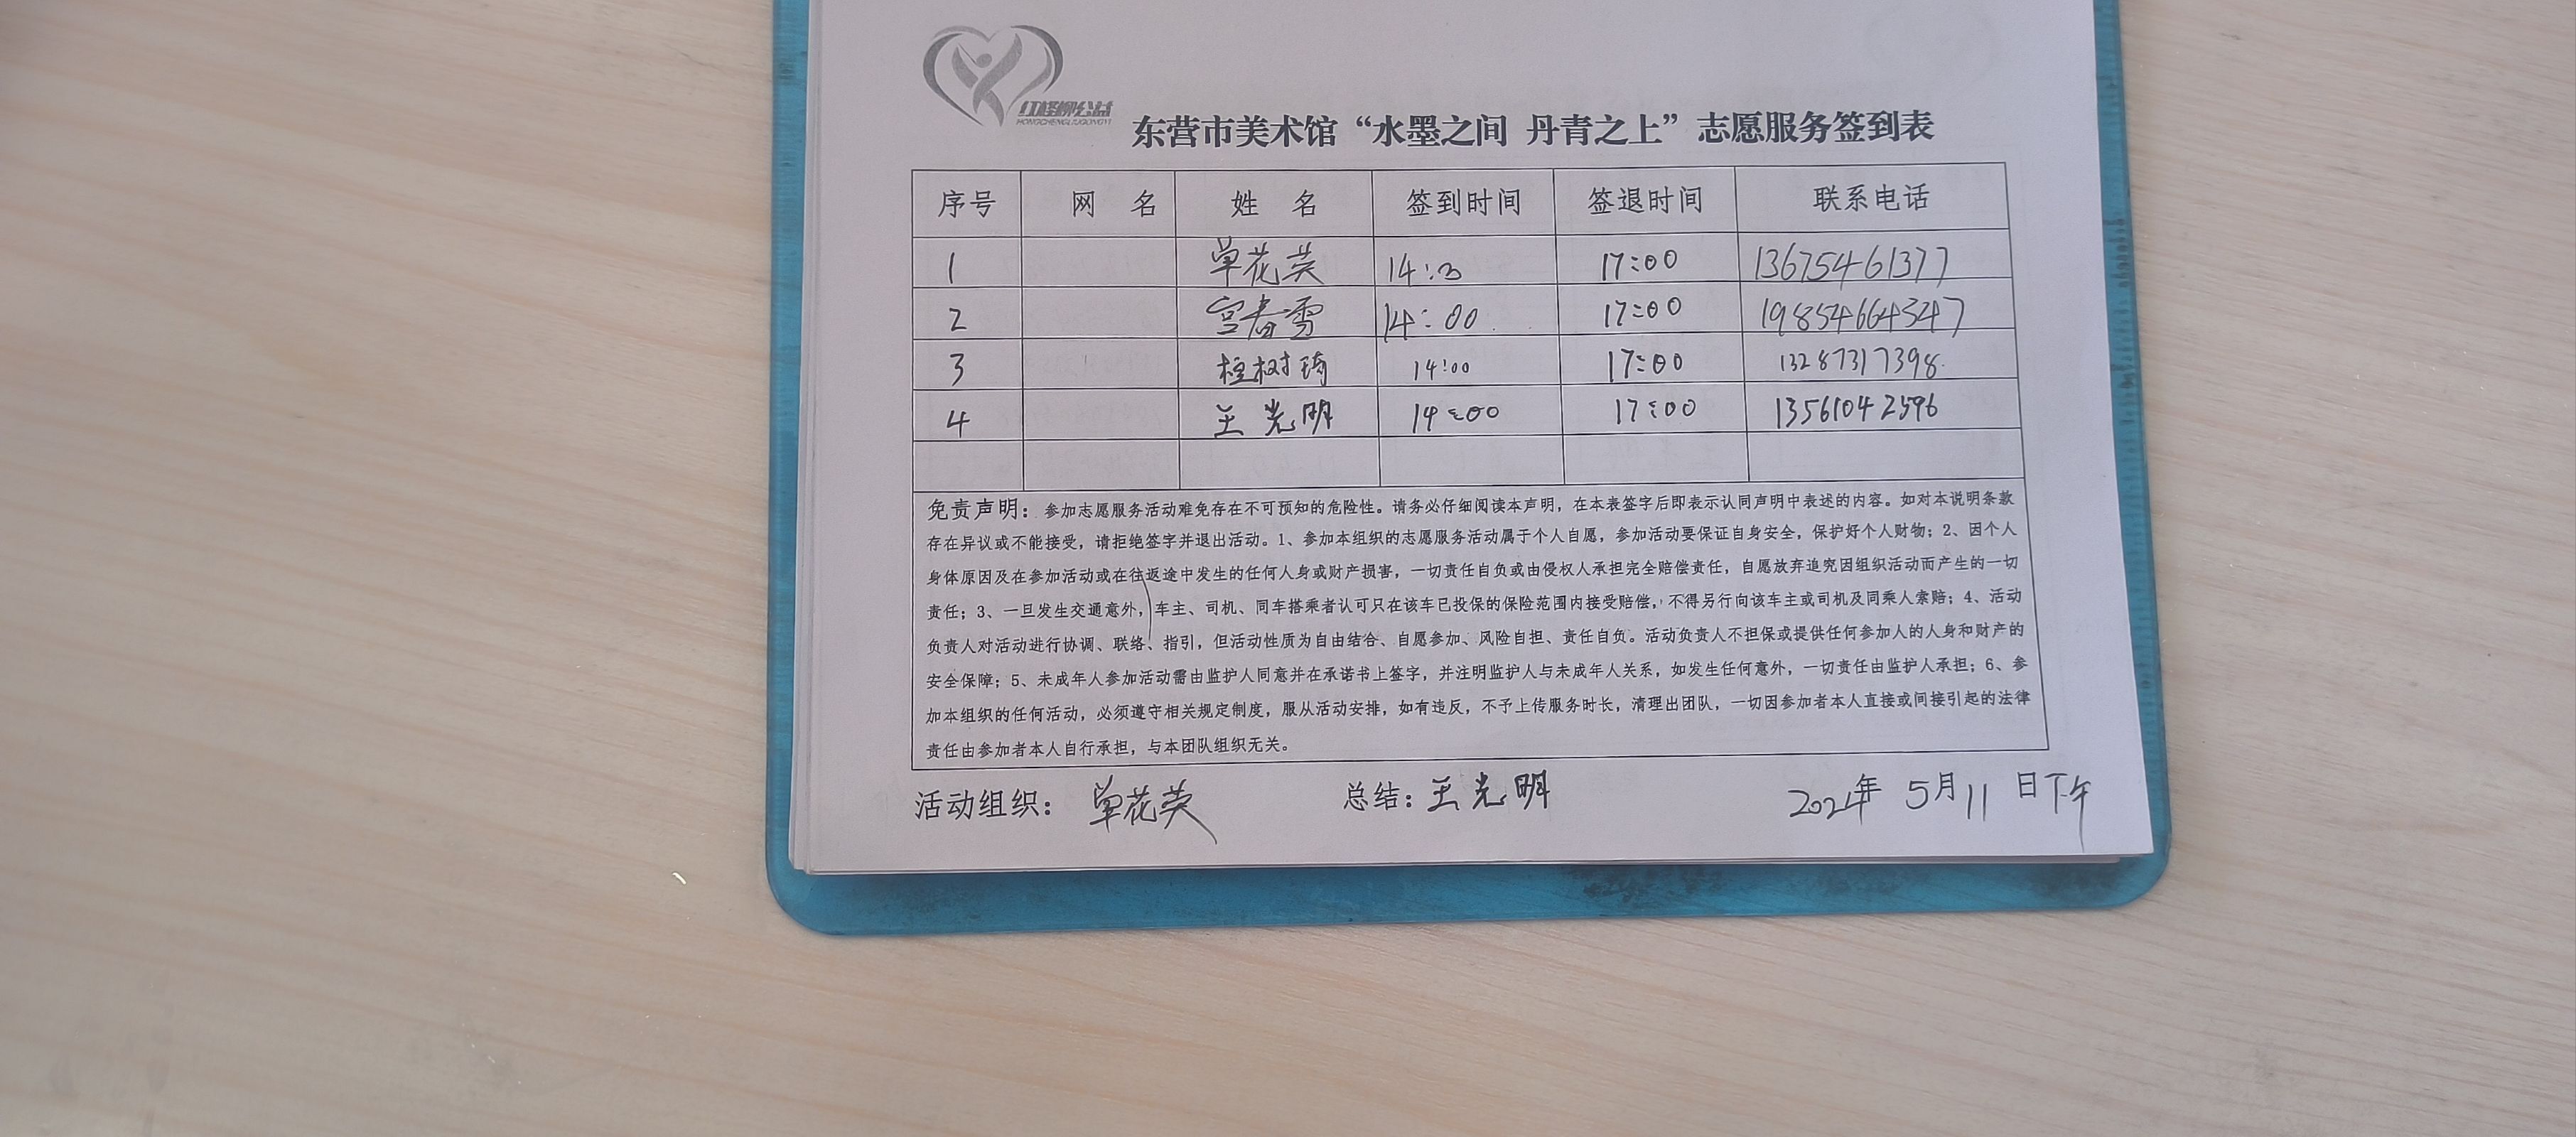 红柽柳公益
HONGCHENGLIUGONGYI
东营市美术馆“水墨之间 丹青之上”志愿服务签到表
序号 网 名 姓 名 签到时间 签退时间 联系电话
1 单花英 14: 17:00 13675461377
2 宫春雪 14:00 17:00 19854664347
3 桓树琦 14:00 17:00 13287317398
4 王光明 14:00 17:00 13561042596
免责声明：参加志愿服务活动难免存在不可预知的危险性。请务必仔细阅读本声明，在本表签字后即表示认同声明中表述的内容。如对本说明条款
存在异议或不能接受，请拒绝签字并退出活动。1、参加本组织的志愿服务活动属于个人自愿，参加活动要保证自身安全，保护好个人财物；2、因个人
身体原因及在参加活动或在往返途中发生的任何人身或财产损害，一切责任自负或由侵权人承担完全赔偿责任，自愿放弃追究因组织活动而产生的一切
责任；3、一旦发生交通意外，车主、司机、同车搭乘者认可只在该车已投保的保险范围内接受赔偿，不得另行向该车主或司机及同乘人索赔；4、活动
负责人对活动进行协调、联络、指引，但活动性质为自由结合、自愿参加、风险自担、责任自负。活动负责人不担保或提供任何参加人的人身和财产的
安全保障；5、未成年人参加活动需由监护人同意并在承诺书上签字，并注明监护人与未成年人关系，如发生任何意外，一切责任由监护人承担；6、参
加本组织的任何活动，必须遵守相关规定制度，服从活动安排，如有违反，不予上传服务时长，清理出团队，一切因参加者本人直接或间接引起的法律
责任由参加者本人自行承担，与本团队组织无关。
活动组织： 单花英 总结：王光明 2024年 5月11 日下午